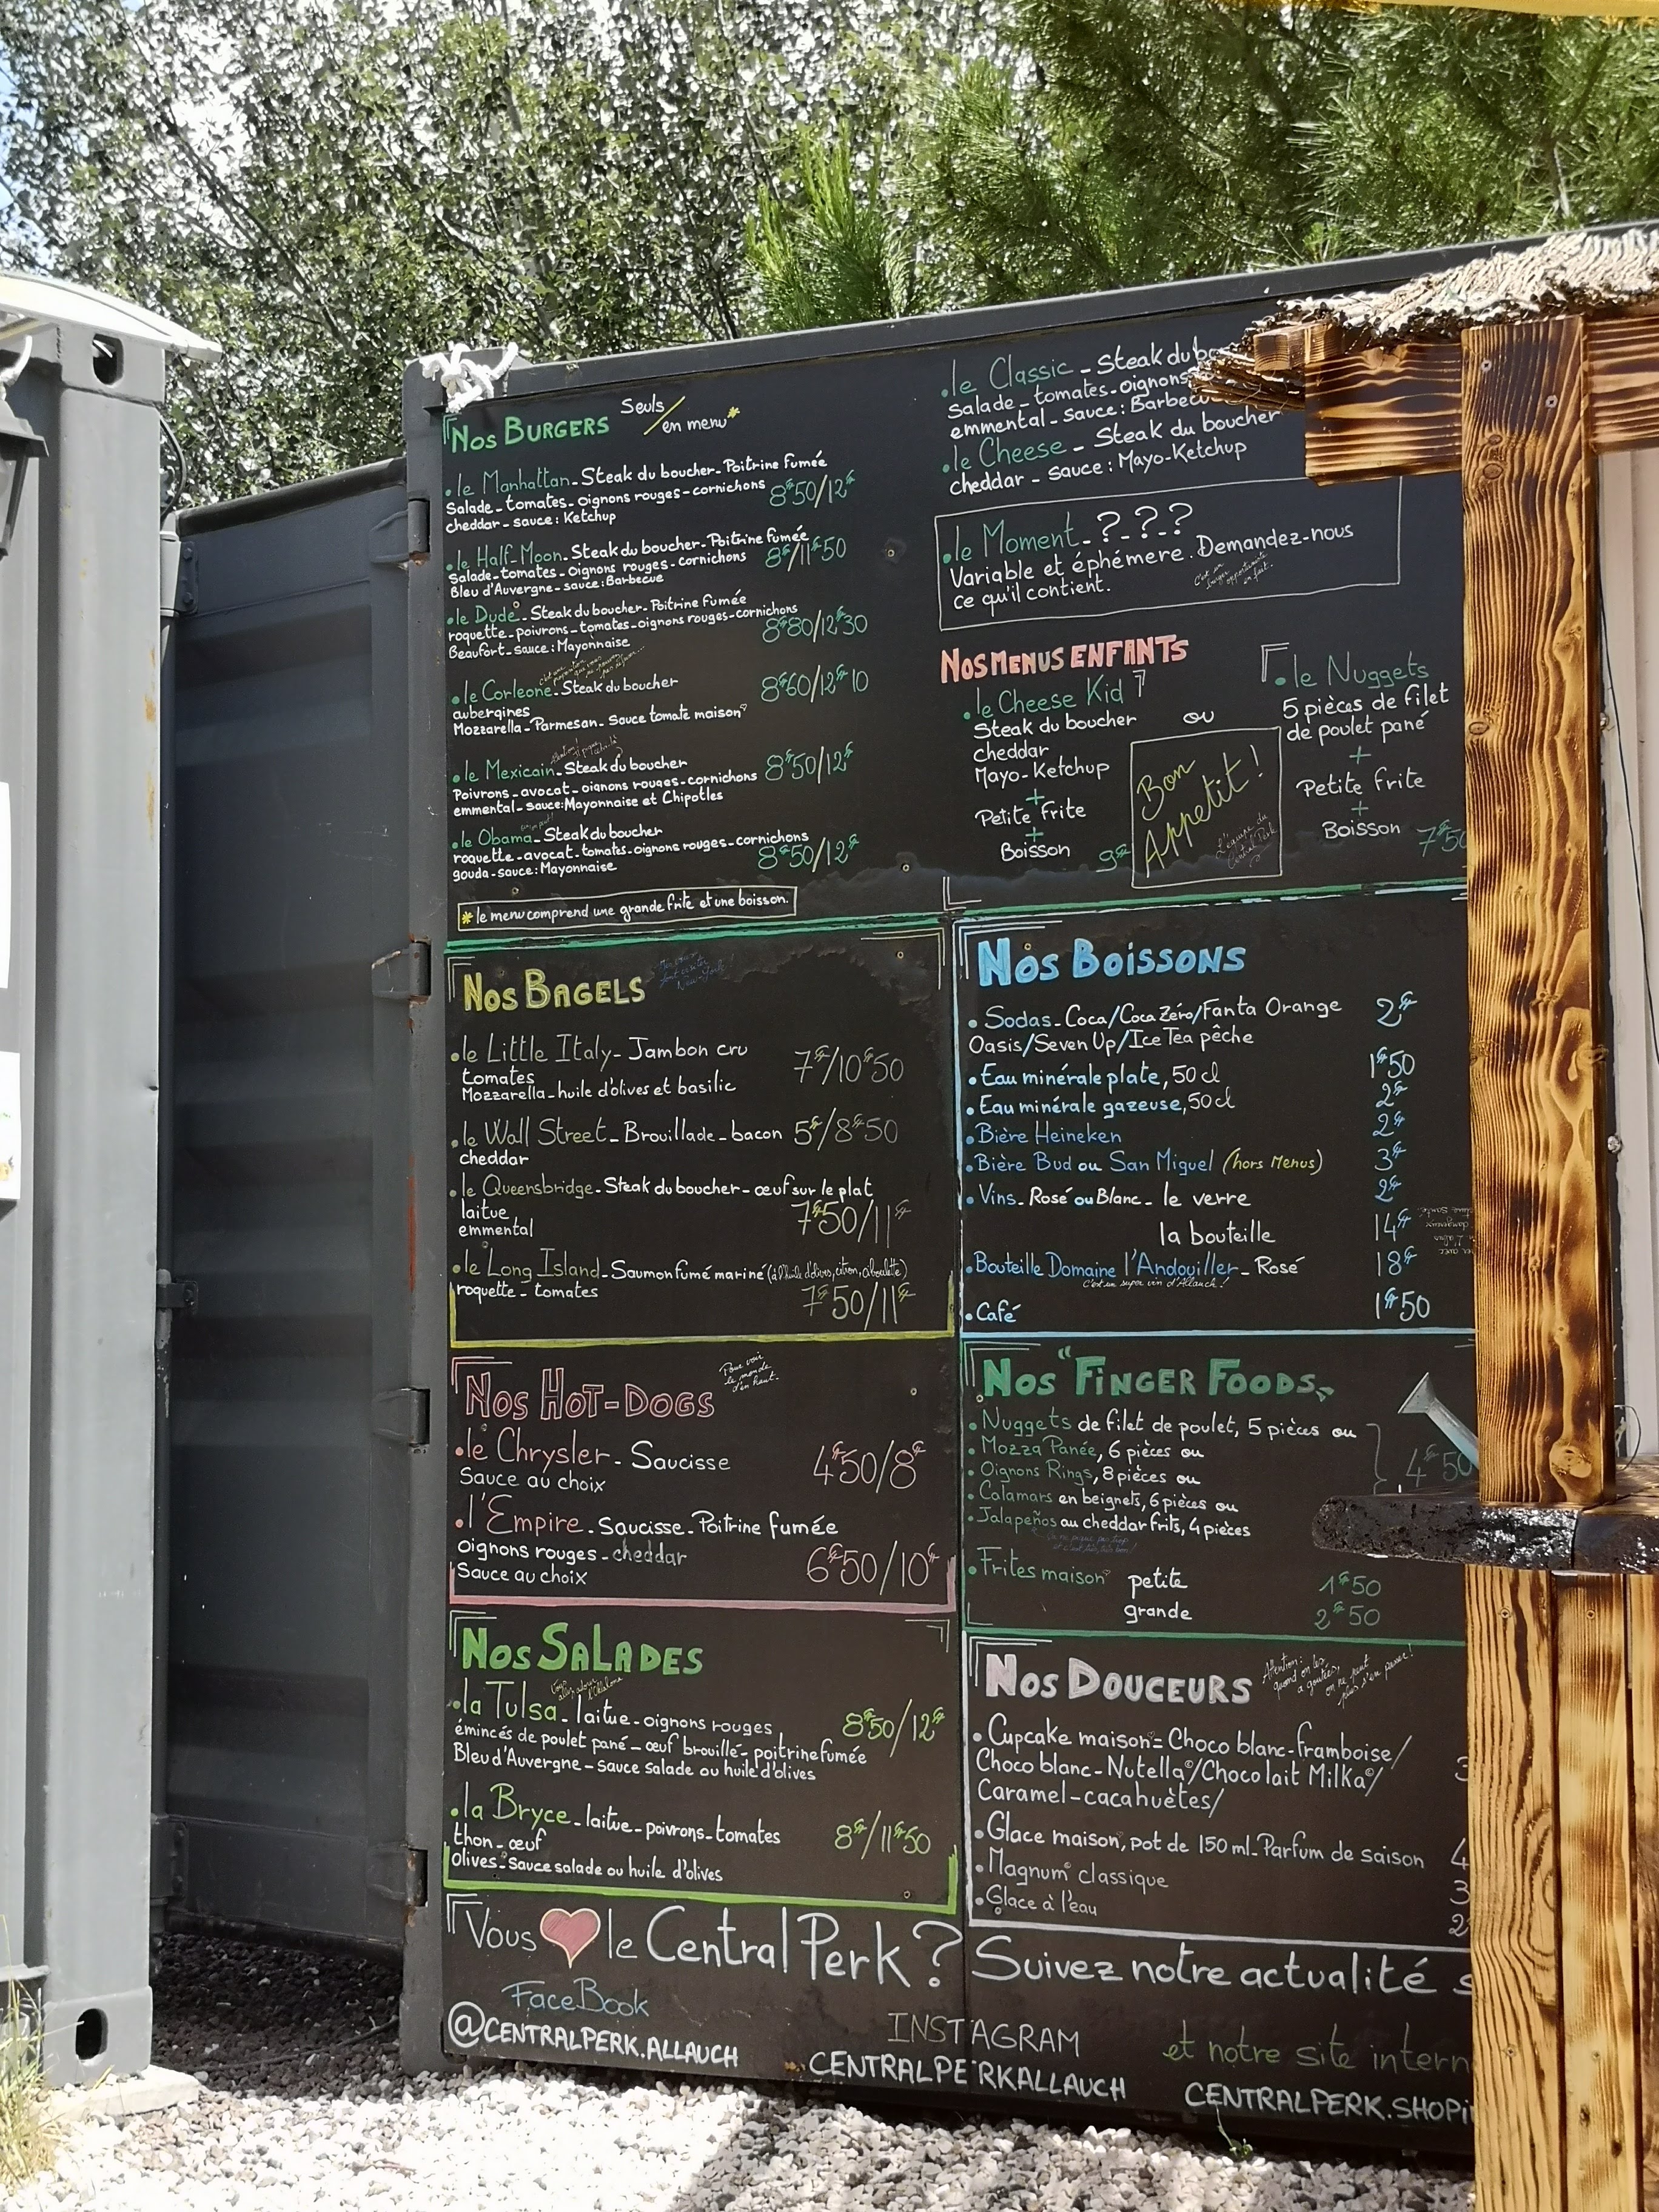 Nos Burgers Seuls / en menu*
.le Manhattan - Steak du boucher - Poitrine fumée
Salade - tomates - oignons rouges - cornichons 8€50/12€
cheddar - sauce : Ketchup
.le Half-Moon - Steak du boucher - Poitrine fumée
Salade - tomates - Oignons rouges - cornichons 8€/11€50
Bleu d'Auvergne - sauce : Barbecue
.le Dude - Steak du boucher - Poitrine Fumée
roquette - poivrons - tomates - oignons rouges - cornichons 8€80/12€30
Beaufort - sauce : Mayonnaise
.le Corleone - Steak du boucher 8€60/12€10
aubergines
Mozzarella - Parmesan - Sauce tomate maison
.le Mexicain - Steak du boucher 8€50/12€
Poivrons - avocat - oignons rouges - cornichons
emmental - sauce : Mayonnaise et Chipotles
.le Obama - Steak du boucher
roquette - avocat - tomates - oignons rouges - cornichons 8€50/12€
gouda - sauce : Mayonnaise
* le menu comprend une grande frite et une boisson.
.le Classic - Steak du
Salade - tomates - oignons
emmental - sauce :
.le Cheese - Steak du boucher
cheddar - sauce : Mayo-Ketchup
.le Moment - ? - ? - ?
Variable et éphémere. Demandez-nous
ce qu'il contient.
Nos Menus Enfants
.le Cheese Kid
Steak du boucher
cheddar
Mayo-Ketchup
+
Petite frite
+
Boisson 9€
ou
Bon
Appetit !
L'équipe du
Central Perk
.le Nuggets
5 pièces de filet
de poulet pané
+
Petite frite
+
Boisson 7€50
Nos Bagels
.le Little Italy - Jambon cru 7€/10€50
tomates
Mozzarella - huile d'olives et basilic
.le Wall Street - Brouillade - bacon 5€/8€50
cheddar
.le Queensbridge - Steak du boucher - œuf sur le plat
laitue 7€50/11€
emmental
.le Long Island - Saumon fumé mariné (à l'huile d'olives, citron, ciboulette)
roquette - tomates 7€50/11€
Nos Boissons
. Sodas - Coca/Coca Zéro/Fanta Orange 2€
Oasis/Seven Up/Ice Tea pêche
. Eau minérale plate, 50 cl 1€50
. Eau minérale gazeuse, 50 cl 2€
. Bière Heineken 2€
. Bière Bud ou San Miguel (hors Menus) 3€
. Vins - Rosé ou Blanc - le verre 2€
la bouteille 14€
. Bouteille Domaine l'Andouiller - Rosé 18€
C'est un super vin d'Allauch !
. Café 1€50
Nos Hot-Dogs Pour voir
le monde
d'en haut.
.le Chrysler - Saucisse 4€50/8€
Sauce au choix
.l'Empire - Saucisse - Poitrine fumée
oignons rouges - cheddar 6€50/10€
Sauce au choix
Nos "Finger Foods"
. Nuggets de filet de poulet, 5 pièces ou
. Mozza Panée, 6 pièces ou
. Oignons Rings, 8 pièces ou 4€50
. Calamars en beignets, 6 pièces ou
. Jalapeños au cheddar frits, 4 pièces
. Frites maison petite 1€50
grande 2€50
Nos Salades
.la Tulsa - laitue - oignons rouges 8€50/12€
émincés de poulet pané - œuf brouillé - poitrine fumée
Bleu d'Auvergne - sauce salade ou huile d'olives
.la Bryce - laitue - poivrons - tomates 8€/11€50
thon - œuf
Olives - sauce salade ou huile d'olives
Nos Douceurs
Attention :
quand on les
a goutées,
on ne peut
plus s'en passer !
. Cupcake maison = Choco blanc-framboise/
Choco blanc-Nutella/Choco lait Milka/ 3
Caramel-cacahuètes/
. Glace maison, pot de 150 ml - Parfum de saison 4
. Magnum classique 3
. Glace à l'eau 2
Vous ♥ le Central Perk ? Suivez notre actualité s
FaceBook
@CENTRALPERK.ALLAUCH
INSTAGRAM
CENTRALPERKALLAUCH
et notre site intern
CENTRALPERK.SHOP